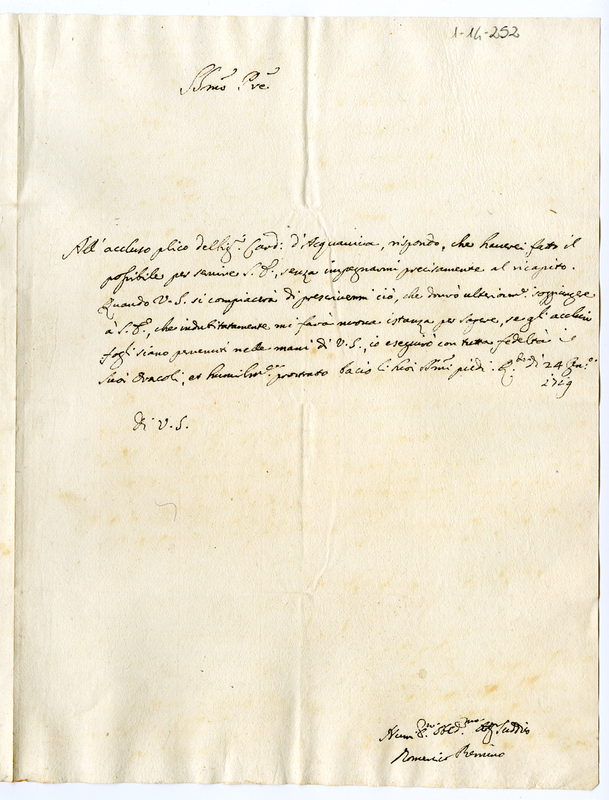 1-16-252
Bmo Pre
All' accluso plico del Sigr. Card: d'Acquaviva, rispondo, che haverei fatto il
possibile per servire S. E., senza impegnarmi precisamente al ricapito.
Quando V. S. si compiacerà di prescrivermi ciò, che dovrò ulteriormte. soggiungere
à S. E., che indubitatamente mi farà nuova istanza per sapere, se gl'acclusi
fogli siano pervenuti nelle mani di V. S., io eseguirò con tutta fedeltà i
suoi Oracoli, et humilmte. prostrato bacio li suoi Bmi piedi. di 24 Gen.o
1719
Di V. S.
Hum. Obed.mo Suddito
Domenico